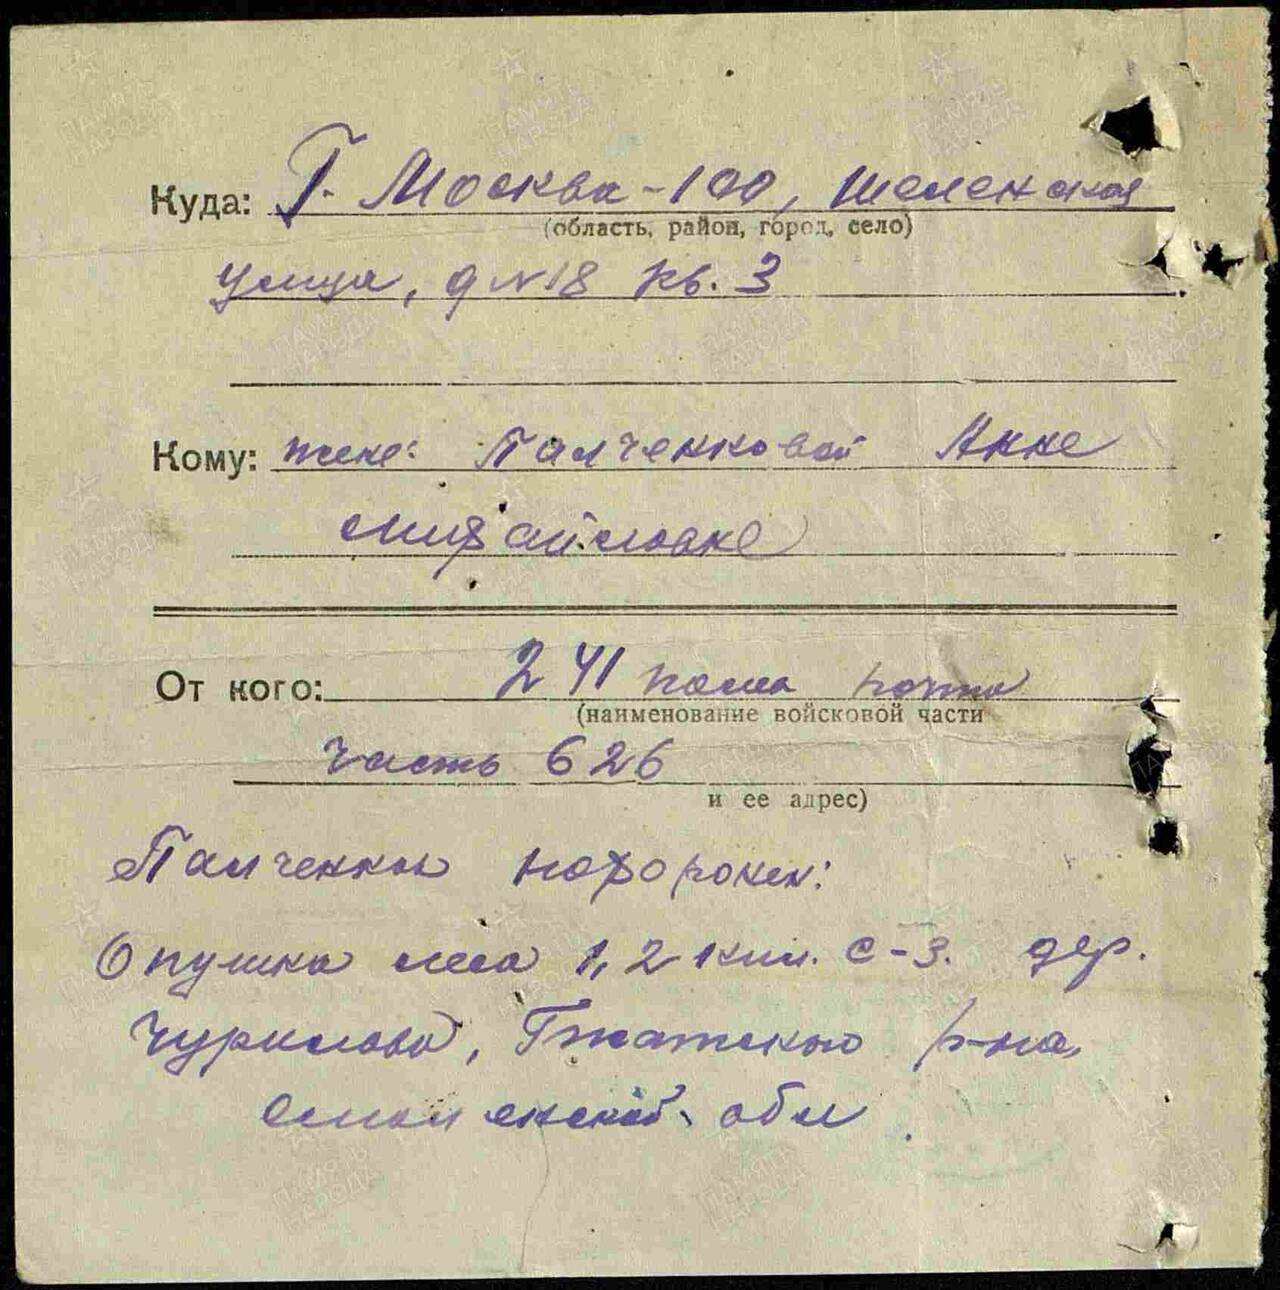 Куда: Г. Москва-100, Шеленская
(область, район, город, село)
улица, д N 18 кв. 3
Кому: жене: Палченковой Анне
Михайловне
От кого: 241 полев почта
(наименование войсковой части
часть 626
и ее адрес)
Палченков похоронен:
Опушка леса 1,2 клм. С-З. дер.
Чурилово, Гжатского р-на,
Смоленской обл
ПАМЯТЬ НАРОДА